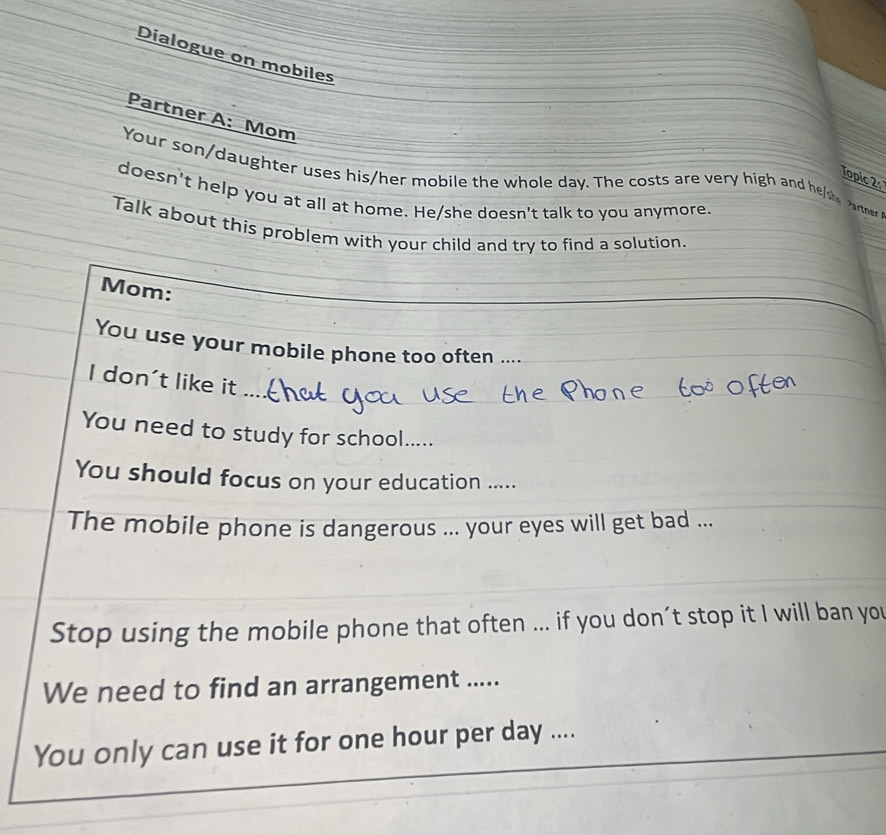 Dialogue on mobiles
Partner A: Mom
Your son/daughter uses his/her mobile the whole day. The costs are very high and he/she
doesn't help you at all at home. He/she doesn't talk to you anymore.
Talk about this problem with your child and try to find a solution.
Topic 2:
Partner A
Mom:
You use your mobile phone too often ....
I don´t like it ....that you use the Phone too often
You need to study for school.....
You should focus on your education .....
The mobile phone is dangerous ... your eyes will get bad ...
Stop using the mobile phone that often ... if you don´t stop it I will ban you
We need to find an arrangement .....
You only can use it for one hour per day ....